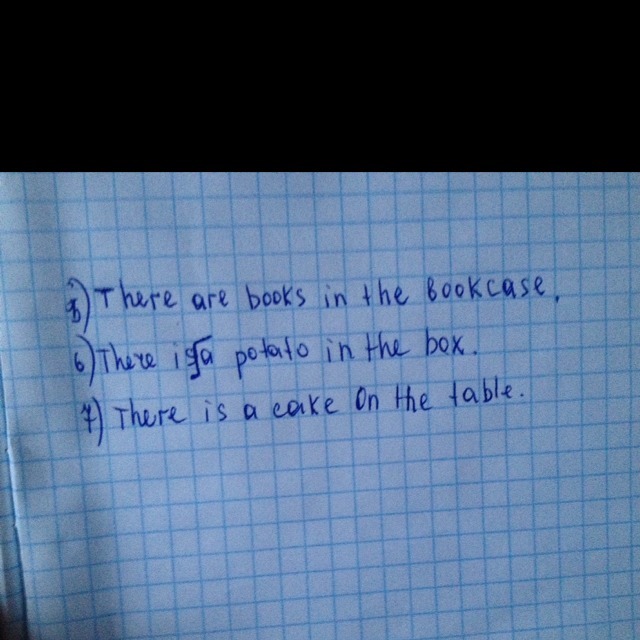 8) There are books in the Bookcase.
6) There is a potato in the box.
7) There is a cake On the table.